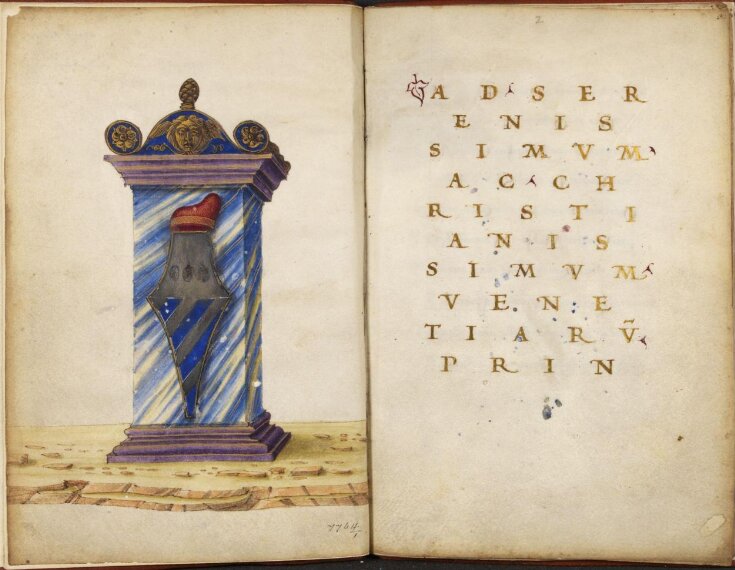 2
AD SER
ENIS
SIMVM
AC CH
RISTI
ANIS
SIMVM
VENE
TIARṼ
PRIN